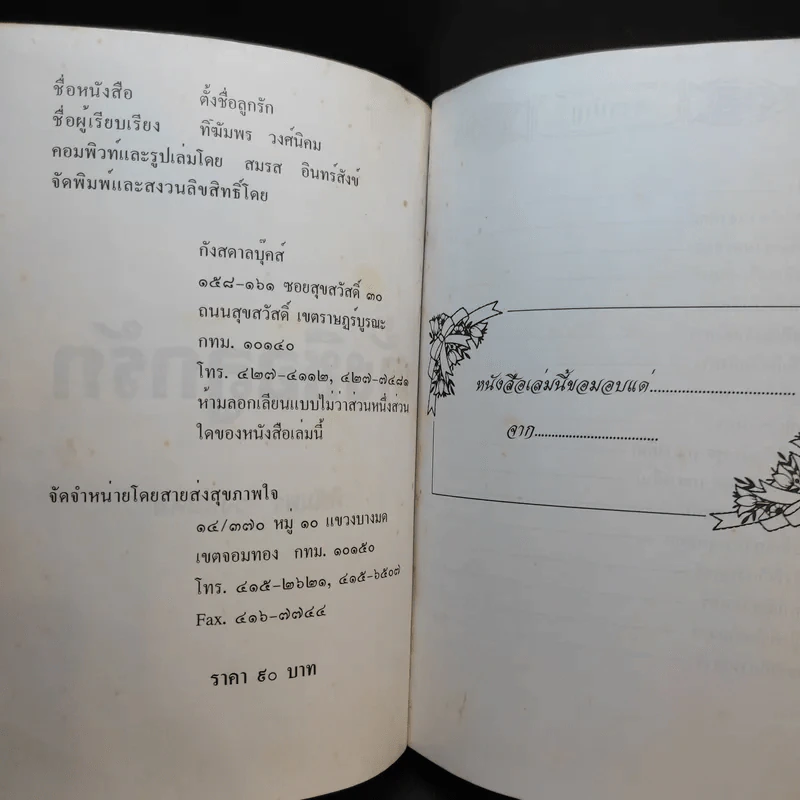 ชื่อหนังสือ ตั้งชื่อลูกรัก
ชื่อผู้เรียบเรียง ทิฆัมพร วงศ์นิคม
คอมพิวท์และรูปเล่มโดย สมรส อินทร์สังข์
จัดพิมพ์และสงวนลิขสิทธิ์โดย
กังสดาลบุ๊คส์
๑๕๘-๑๖๑ ซอยสุขสวัสดิ์ ๓๐
ถนนสุขสวัสดิ์ เขตราษฎร์บูรณะ
กทม. ๑๐๑๔๐
โทร. ๔๒๗-๔๑๑๒, ๔๒๗-๗๔๘๑
ห้ามลอกเลียนแบบไม่ว่าส่วนหนึ่งส่วน
ใดของหนังสือเล่มนี้
จัดจำหน่ายโดยสายส่งสุขภาพใจ
๑๔/๓๗๐ หมู่ ๑๐ แขวงบางมด
เขตจอมทอง กทม. ๑๐๑๕๐
โทร. ๔๑๕-๒๖๒๑, ๔๑๕-๖๕๐๗
Fax. ๔๑๖-๗๗๔๔
ราคา ๙๐ บาท
หนังสือเล่มนี้ขอมอบแด่....................................
จาก..................................